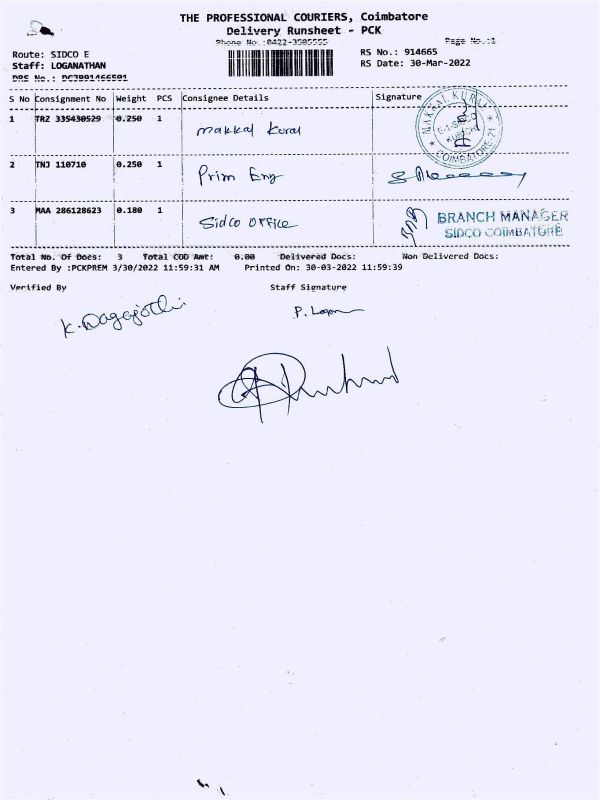 THE PROFESSIONAL COURIERS, Coimbatore
Delivery Runsheet - PCK
Phone No :0422-3505555 Page No.:1
Route: SIDCO E RS No.: 914665
Staff: LOGANATHAN RS Date: 30-Mar-2022
DRS No.:
S No Consignment No Weight PCS Consignee Details Signature
1 TRZ 335430529 0.250 1 makkal Kural
MAKKAL KURAL
COIMBATORE 21
2 TNJ 110710 0.250 1 Prim Eng
3 MAA 286128623 0.180 1 Sidco office
BRANCH MANAGER
SIDCO COIMBATORE
Total No. Of Docs: 3 Total COD Amt: 0.00 Delivered Docs: Non Delivered Docs:
Entered By :PCKPREM 3/30/2022 11:59:31 AM Printed On: 30-03-2022 11:59:39
Verified By Staff Signature
P. Logan